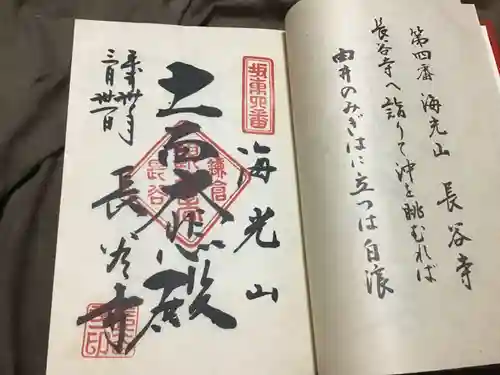 第四番 海光山 長谷寺
長谷寺へ詣りて沖を眺むれば
由井のみぎはに立つは白浪
坂東四番
海光山
十一面大悲殿
鎌倉
長谷
長谷寺
三月卅一日